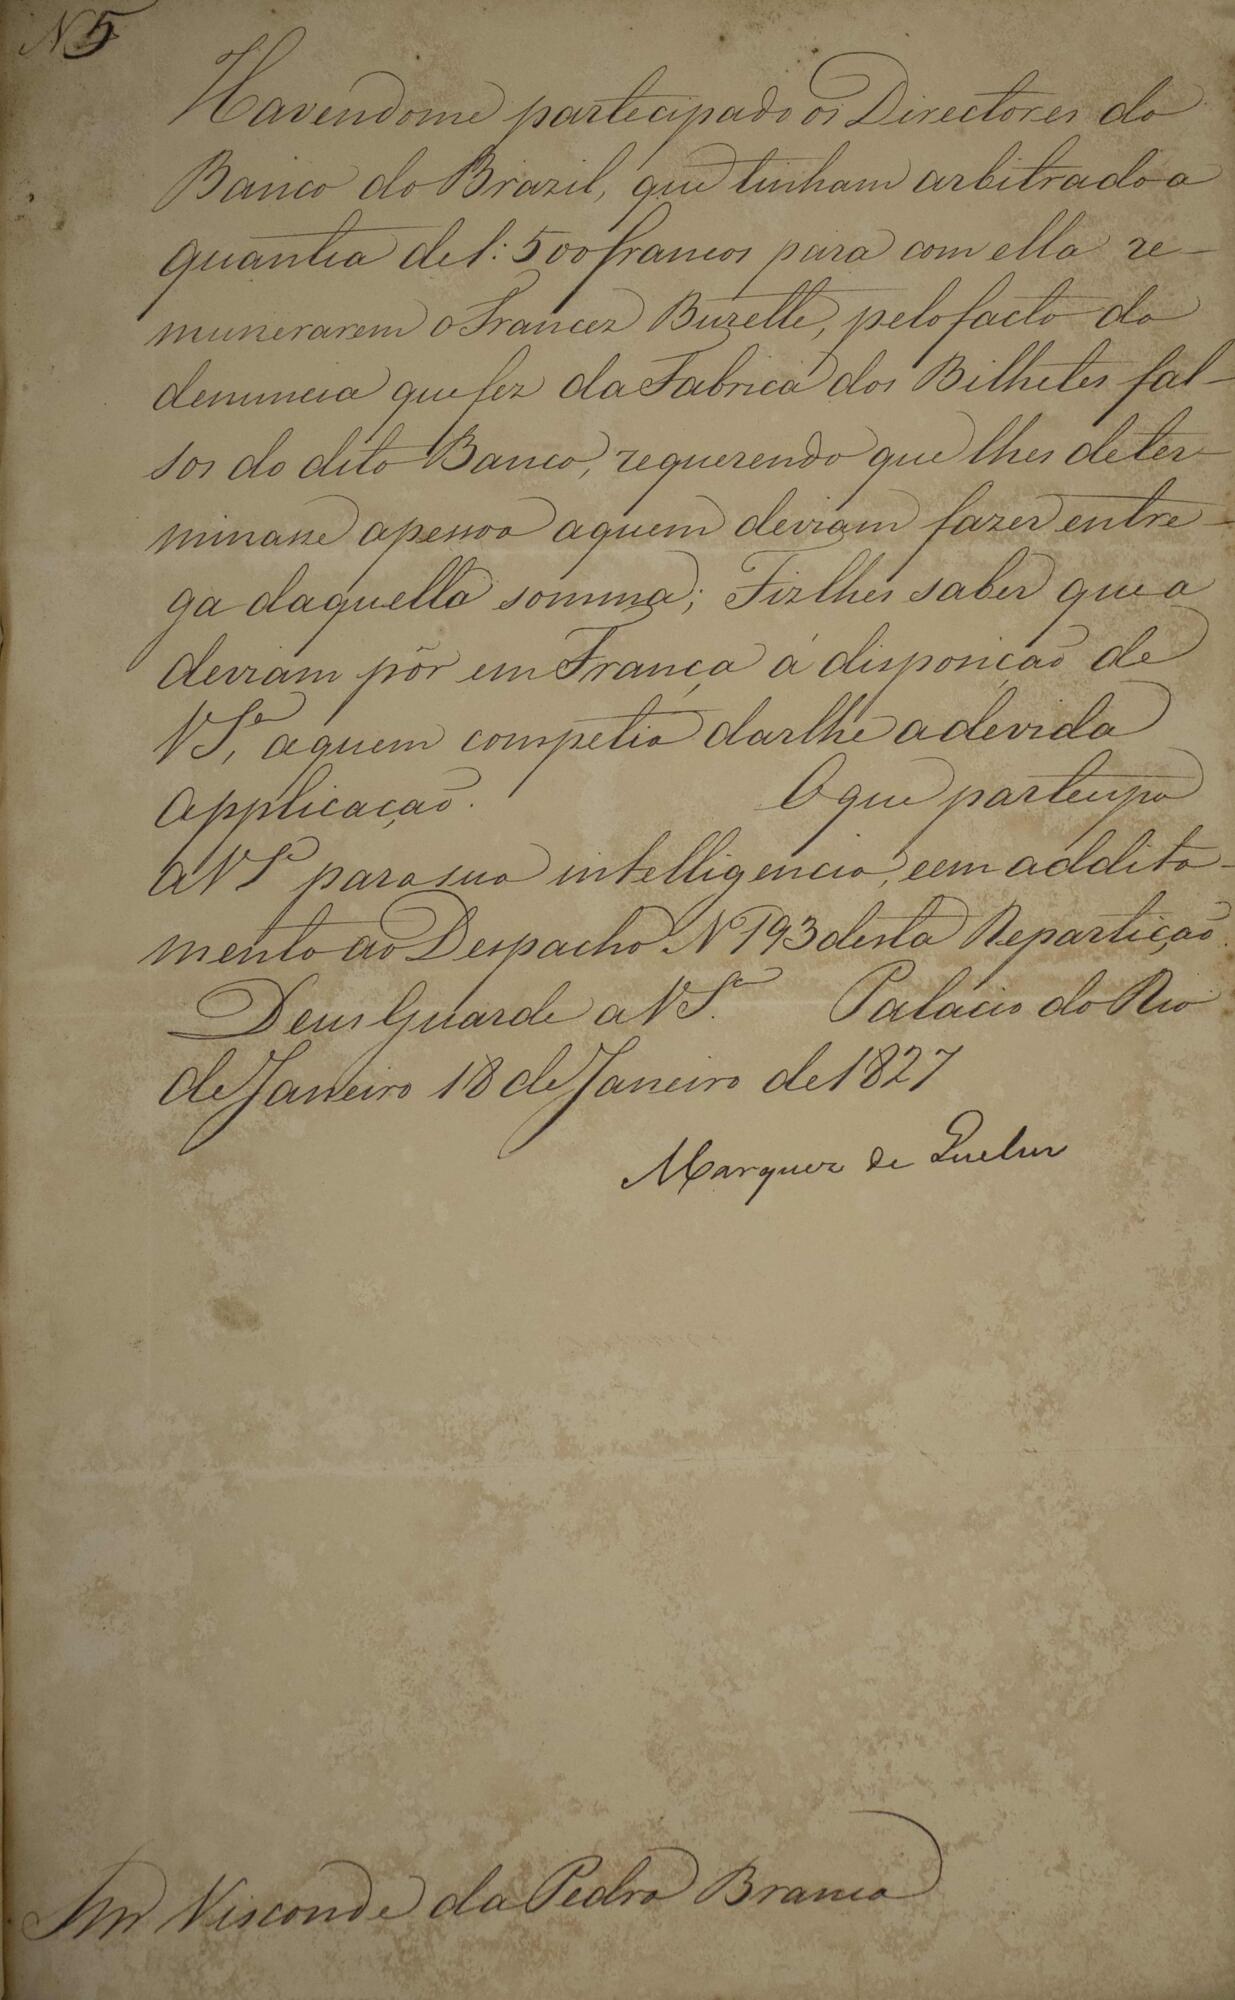 N 5
Havendome partecipado os Directores do
Banco do Brazil, que tinham arbitrado a
quantia de 1:500 francos para com ella re-
munerarem o Francez Buzelle, pelo facto da
denuncia que fez da Fabrica dos Bilhetes fal-
sos do dito Banco, requerendo que lhes deter-
minasse apessoa aquem deviam fazer entre-
ga daquella somma; Fizlhes saber que a
deviam pôr em França á disposição de
VS.ª, aquem competia darlhe a devida
Applicação. O que partecipo
a VSª para sua intelligencia, e em addita-
mento ao Despacho Nº 193 desta Repartição.
Deus Guarde a VS.ª Palacio do Rio
de Janeiro 18 de Janeiro de 1827
Marquez de Queluz
Snr Visconde da Pedra Branca